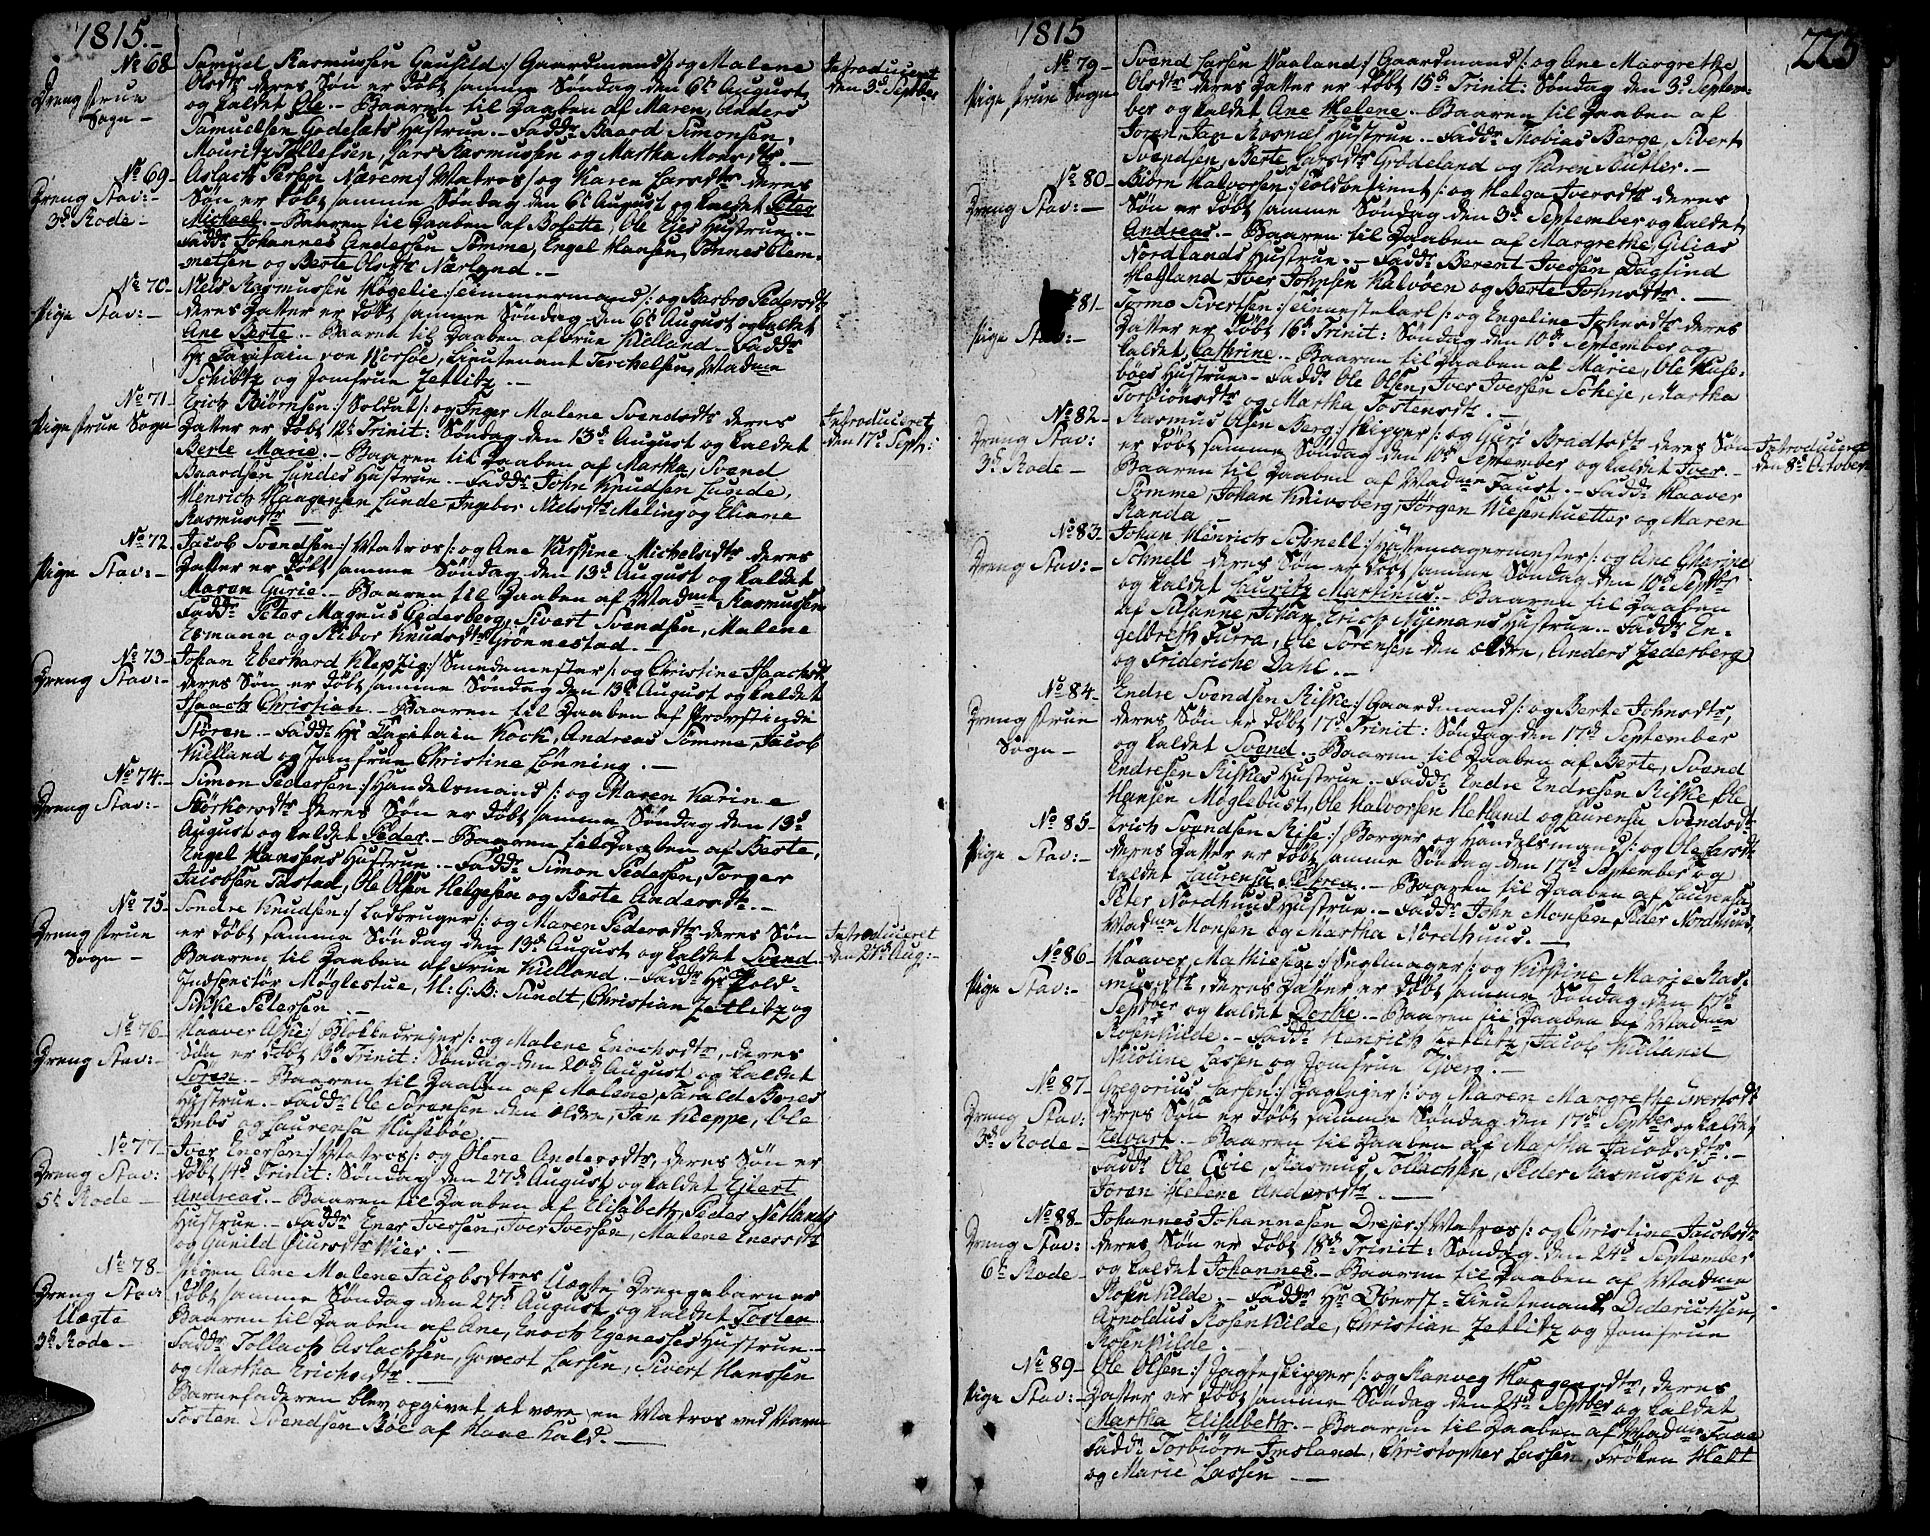 1815.
No 68
Dreng frue
Sogn
Samuel Rasmussen Gausild :/ Gaardmand /: og Malene
Olsdtr deres Søn er døbt samme Søndag den 6te August
og kaldet Ole. Baaren til Daaben af Maren, Anders
Samuelsen Godesæts Hustrue. Faddr Baard Simonsen,
Mouritz Tollefsen, Lars Rasmussen og Martha Monsdtr.
Introduceret
den 3d Septber
No 69
Dreng Stav:
3d Rode
Aslach Nærem :/ Matros /: og Karen Larsdtr deres
Søn er døbt samme Søndag den 6te August og kaldet Peter
Michael. Baaren til Daaben af Bolette, Ole Ejes Hustrue.
Faddr Johannes Andersen Sømme, Engel Hansen, Tønnes Clem-
metsen og Berte Olsdtr Nærland.
No 70
Pige Stav:
Niels Rasmussen Høgelie :/ Timmermand /: og Barbro Pedersdtr
deres Datter er døbt samme Søndag den 6te August og kaldet
Ane Berte. Baaren til Daaben af Frue Kielland. Faddr
Hr Capitain von Korsøe, Lieutenant Terchelsen, Madme
Schiøtz og Jomfrue Zetlitz.
No 71
Pige frue Sogn
Erich Biørnsen :/ Soldat /: og Inger Malene Svendsdtr deres
Datter er døbt 12te Trinit: Søndag den 13d August og kaldet
Berte Marie. Baaren til Daaben af Martha, Svend
Baardsen Lundes Hustrue. Faddr John Knudsen Lunde,
Henrich Haagensen Lunde, Ingebor Nielsdtr Meling og Eliene
Rasmusdtr
Introduceret
den 17d Septr:
No 72
Pige Stav:
Jacob Svendsen :/ Matros /: og Ane Kirstine Michelsdtr deres
Datter er døbt samme Søndag den 13d August og kaldet
Maren Gurie. Baaren til Daaben af Madme Rasmussen
Faddr Peter Magnus Cedersberg, Sivert Svendsen, Malene
Esmann og Sibor Knudsdtr Grønnestad.
No 73
Dreng Stav:
Johan Eberhard Klepzig :/ Smedemester /: og Christine Isaachsdtr
deres Søn er døbt samme Søndag den 13d August og kaldet
Isaach Christian. Baaren til Daaben af Provstinde
Støren. Faddr Hr Capitain Kock, Andreas Sømme, Jacob
Kielland og Jomfrue Christine Lønning.
No 74
Dreng Stav:
Simon Pedersen :/ Handelsmand /: og Maren Karine
Størkersdtr deres Søn er døbt samme Søndag den 13d
August og kaldet Peder. Baaren til Daaben af Berte,
Engel Hanssens Hustrue. Faddr Simon Pedersen, Torger
Jacobsen Tastad, Ole Olsen Helgesen og Berte Andersdtr.
No 75
Dreng frue
Sogn
Sondre Knudsen :/ Lodsbruger /: og Maren Pedersdtr deres Søn
er døbt samme Søndag den 13d August og kaldet Svend.
Baaren til Daaben af Frue Kielland. Faddr Hr Told-
Inspectør Møglestue, H: G: B: Sundt, Christian Zetlitz og
Sikke Petersen
Introduceret
den 27d Aug:
No 76
Dreng Stav:
Haaver Aske :/ Blokkedreyer /: og Malene Enochsdtr, deres
Søn er døbt 13d Trinit: Søndag den 20d August og kaldet
Søren. Baaren til Daaben af Malene, Tarald Bores
Hustrue. Faddr Ole Sørensen den ældre, Jan Kleppe, Ole
Imbs og Laurensa Husebøe.
No 77
Dreng Stav:
5t Rode
Iver Enersen :/ Matros /: og Olene Andersdtr, deres Søn er
døbt 14d Trinit: Søndag den 27d August og kaldet Ejlert
Andreas. Baaren til Daaben af Elisabeth, Peder Netlands
Hustrue. Faddr Ener Iversen, Iver Iversen, Malene Enersdtr
og Gunild Wier.
No 78
Dreng Stav:
Uægte
3d Rode
Pigen Ane Malene Jacobsdtres Uægte Drengebarn er
døbt samme Søndag den 27d August og kaldet Tosten.
Baaren til Daaben af Ane, Enoch Egenesses Hustrue.
Faddr Tollach Aslachsen, Gowert Larsen, Sivert Hanssen
og Martha Erichsdtr.
Barnefaderen blev opgivet at være en Matros ved Navn
Tosten Svendsen Bøe af Haae Kald.
1815
225
No 79
Pige frue Sogn
Svend Larsen Vaaland :/ Gaardmand /: og Ane Margrethe
Olsdtr deres Datter er døbt 15d Trinit: Søndag den 3d Septem-
ber og kaldet Ane Helene. Baaren til Daaben af
Joren, Jan Rosnæs Hustrue. Faddr Thobias Berge, Sivert
Svendsen, Berte Larsdtr Grødeland og Karen Butler.
No 80
Dreng Stav:
Biørn Halvorsen :/ Toldbetient /: og Helga Iversdtr deres
Søn er døbt samme Søndag den 3d September og kaldet
Andreas. Baaren til Daaben af Margrethe, Elias
Nordlands Hustrue. Faddr Berent Iversen, Dagfind
Hegland, Iver Johnsen Kalvøen og Berte Johnsdtr.
81
Pige Stav:
Tormo Sivertsen :/ Tienestekarl /: og Engeline Johnsdtr deres
Datter er døbt 16d Trinit: Søndag den 10d September og
kaldet Cathrine. Baaren til Daaben af Marie, Ole Huse-
bøes Hustrue. Faddr Ole Olsen, Iver Iversen Scheje, Martha
Torbiønsdtr og Martha Tostensdtr.
No 82
Dreng Stav:
3d Rode
Rasmus Olsen Berg :/ Skipper /: og Guri Bradtsdtr deres Søn
er døbt samme Søndag den 10d September og kaldet Iver.
Baaren til Daaben af Madme Faust. Faddr Haaver
Sømme, Johan Knivsberg, Jørgen Wiesenhuetter og Maren
Randa
Introduceret
den 8d October
No 83
Dreng Stav:
Johan Henrich Schnell :/ Hattemagermester /: og Ane Cathrine
Schnell deres Søn er døbt samme Søndag den 10d Septbr
og kaldet Lauritz Martinus. Baaren til Daaben
af Susanne, Johan Erich Nyemans Hustrue. Faddr En-
gelbreth Furra, Ole Sørensen den ældre, Anders Zederberg
og Frideriche Dahl.
No 84
Dreng frue
Sogn
Endre Svendsen Riske :/ Gaardmand /: og Berte Johnsdtr,
deres Søn er døbt 17d Trinit: Søndag den 17d September
og kaldet Svend. Baaren til Daaben af Berte, Svend
Endresen Riskes Hustrue. Faddr Endre Endresen Riske, Ole
Hansen Møglebust, Ole Halvorsen Hetland og Laurensa Svendsdtr
No 85
Pige Stav:
Erich Svendsen Rise :/ Borger og Handelsmand /: og Ole Larsdtr
deres Datter er døbt samme Søndag den 17d September og
kaldet Laurensa Petrea. Baaren til Daaben af Laurensa
Peter Nordhuus Hustrue. Faddr John Monsen, Peder Nordhuus,
Madme Monsen og Martha Nordhuus.
No 86
Pige Stav:
Haaver Mathiesen :/ Seglmager /: og Kirstine Marie Ras-
musdtr, deres Datter er døbt samme Søndag den 17d
Septber og kaldet Derthe. Baaren til Daaben af Madme
Rosenkilde. Faddr Henrich Zetlitz, Jacob Kielland
Nicoline Lassen og Jomfrue Ejberg.
No 87
Dreng Stav:
3d Rode
Gregorius Larsen :/ Daglejer /: og Maren Margrethe Ivertsdtr
deres Søn er døbt samme Søndag den 17d Septber og kaldet
Edvart. Baaren til Daaben af Martha Jacobsdtr.
Faddr Ole Evie, Rasmus Tollachsen, Peder Rasmussen og
Joren Helene Andersdtr.
No 88
Dreng Stav:
6t Rode
Johannes Johannesen Drejer :/ Matros /: og Christine Jacobsdtr
deres Søn er døbt 18d Trinit: Søndag den 24d September
og kaldet Johannes. Baaren til Daaben af Madme
Rosenkilde. Faddr Hr Oberst-Lieutenant Diderichsen,
Arnoldus Rosenkilde, Christian Zetlitz og Jomfrue
Rosenkilde.
No 89
Pige Stav:
Ole Olsen :/ Jagteskipper /: og Ranveg Haagensdtr, deres
Datter er døbt samme Søndag den 24d Septber og kaldet
Martha Elisabeth. Baaren til Daaben af Madme Faae
Faddr Torbiørn Imsland, Christopher Lassen, Frøken Hett
og Marie Lassen